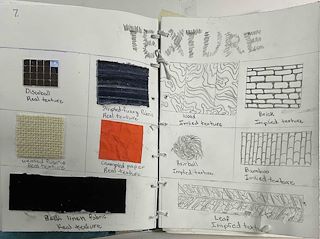 7
TEXTURE
Discoball
Real texture
Striped fuzzy fabric
Real texture
Real texture
Crumpled paper
Real texture
Black linen fabric
Real texture
Wood
Implied texture
Brick
Implied texture
Hairball
Implied texture
Bamboo
Implied texture
Leaf
Implied texture